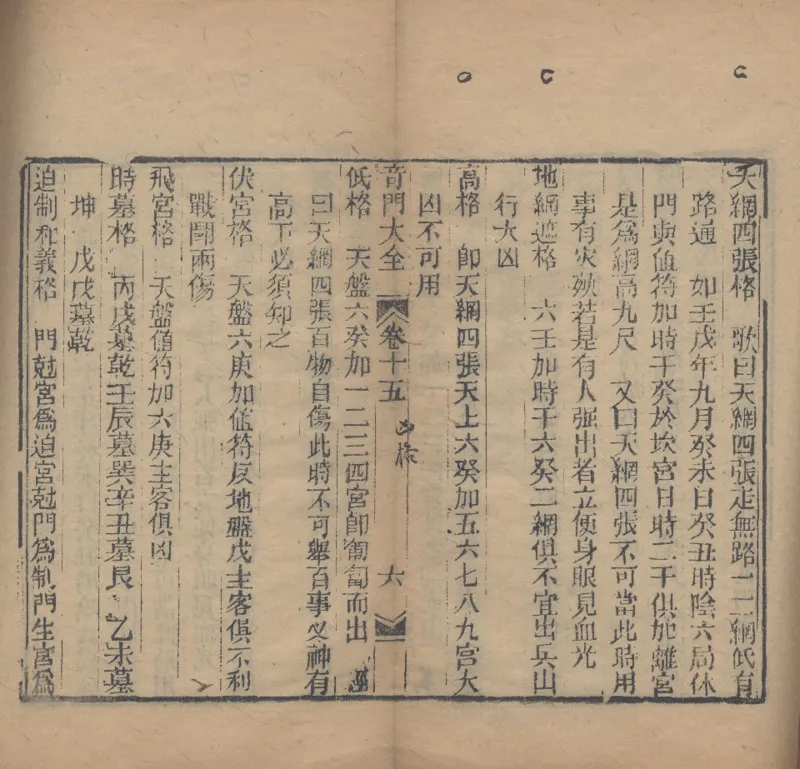 天網四張格　歌曰天網四張走無路一二網低有
路通　如壬戌年九月癸未日癸丑時陰六局休
門與值符加時干癸於坎宮日時二干俱加離宮
是爲網高九尺　又曰天網四張不可當此時用
事有灾殃若是有人强出者立便身眼見血光
地網遮格　六壬加時干六癸二網俱不宜出兵山
行大凶
高格　卽天網四張天上六癸加五六七八九宮大
凶不可用
奇門大全　卷十五　凶格　六
低格　天盤六癸加一二三四宮卽匍匐而出
曰天網四張百物自傷此時不可舉百事又神有
高下必須知之
伏宮格　天盤六庚加值符反地盤戊主客俱不利
戰鬪兩傷
飛宮格　天盤值符加六庚主客俱凶
時墓格　丙戌墓乾壬辰墓巽辛丑墓艮　乙未墓
坤　戊戌墓乾
迫制和義格　門尅宮爲迫宮尅門爲制門生宮爲